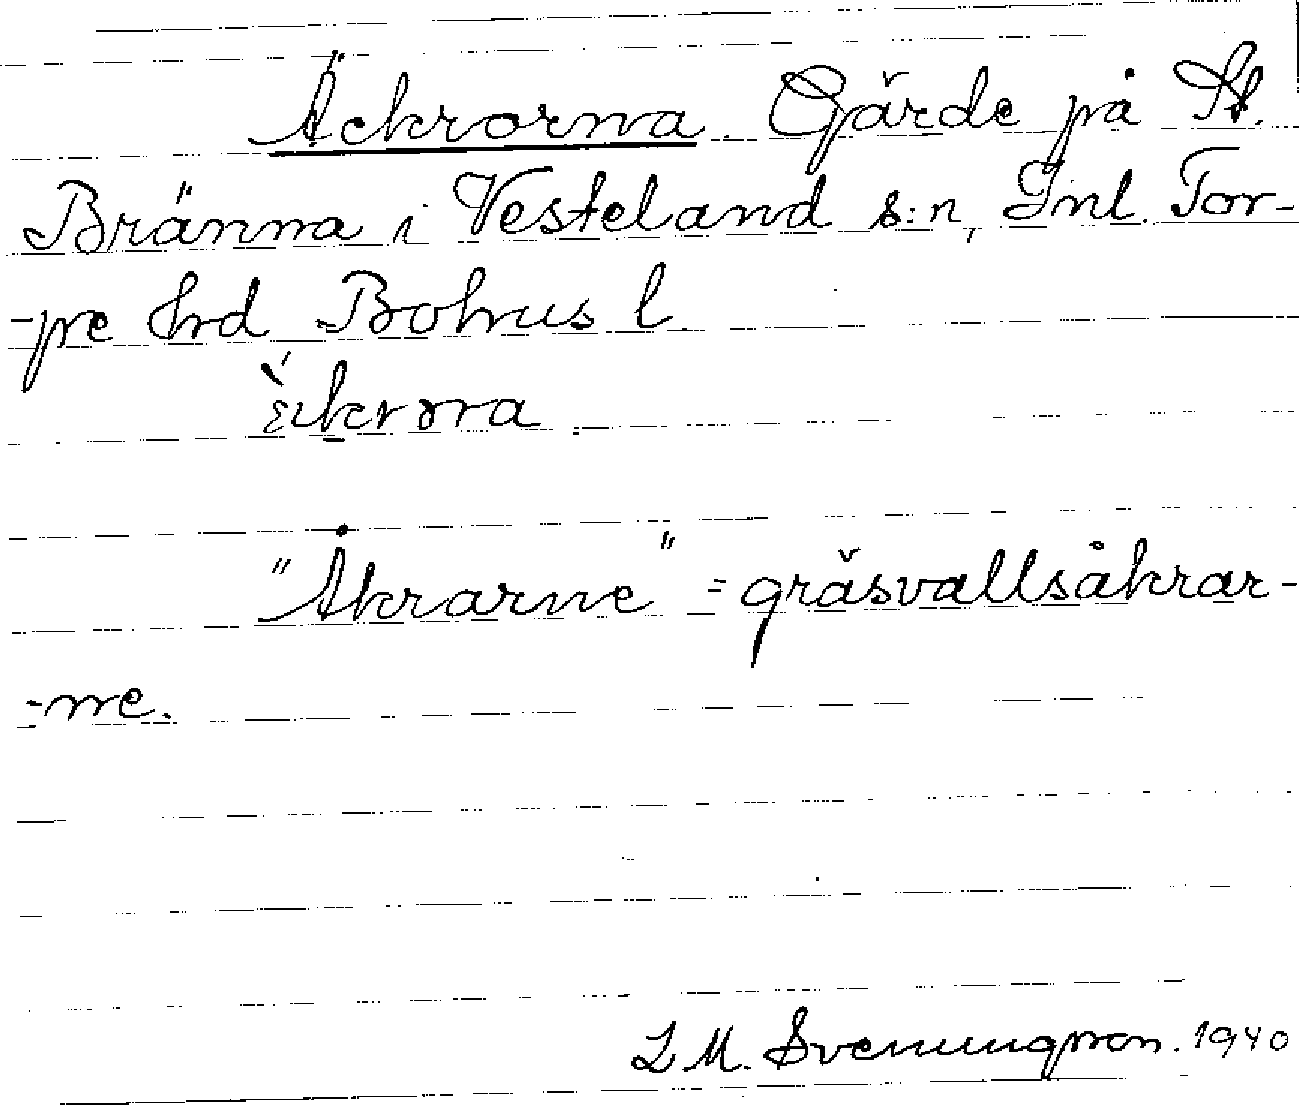 Äckrorna. Gärde på St.
Bränna i Vesteland s:n, Inl. Tor-
-pe hrd Bohus l.
"Åkrarne" = gräsvallsåkrar-
=ne.
L M. Svenungsson. 1940